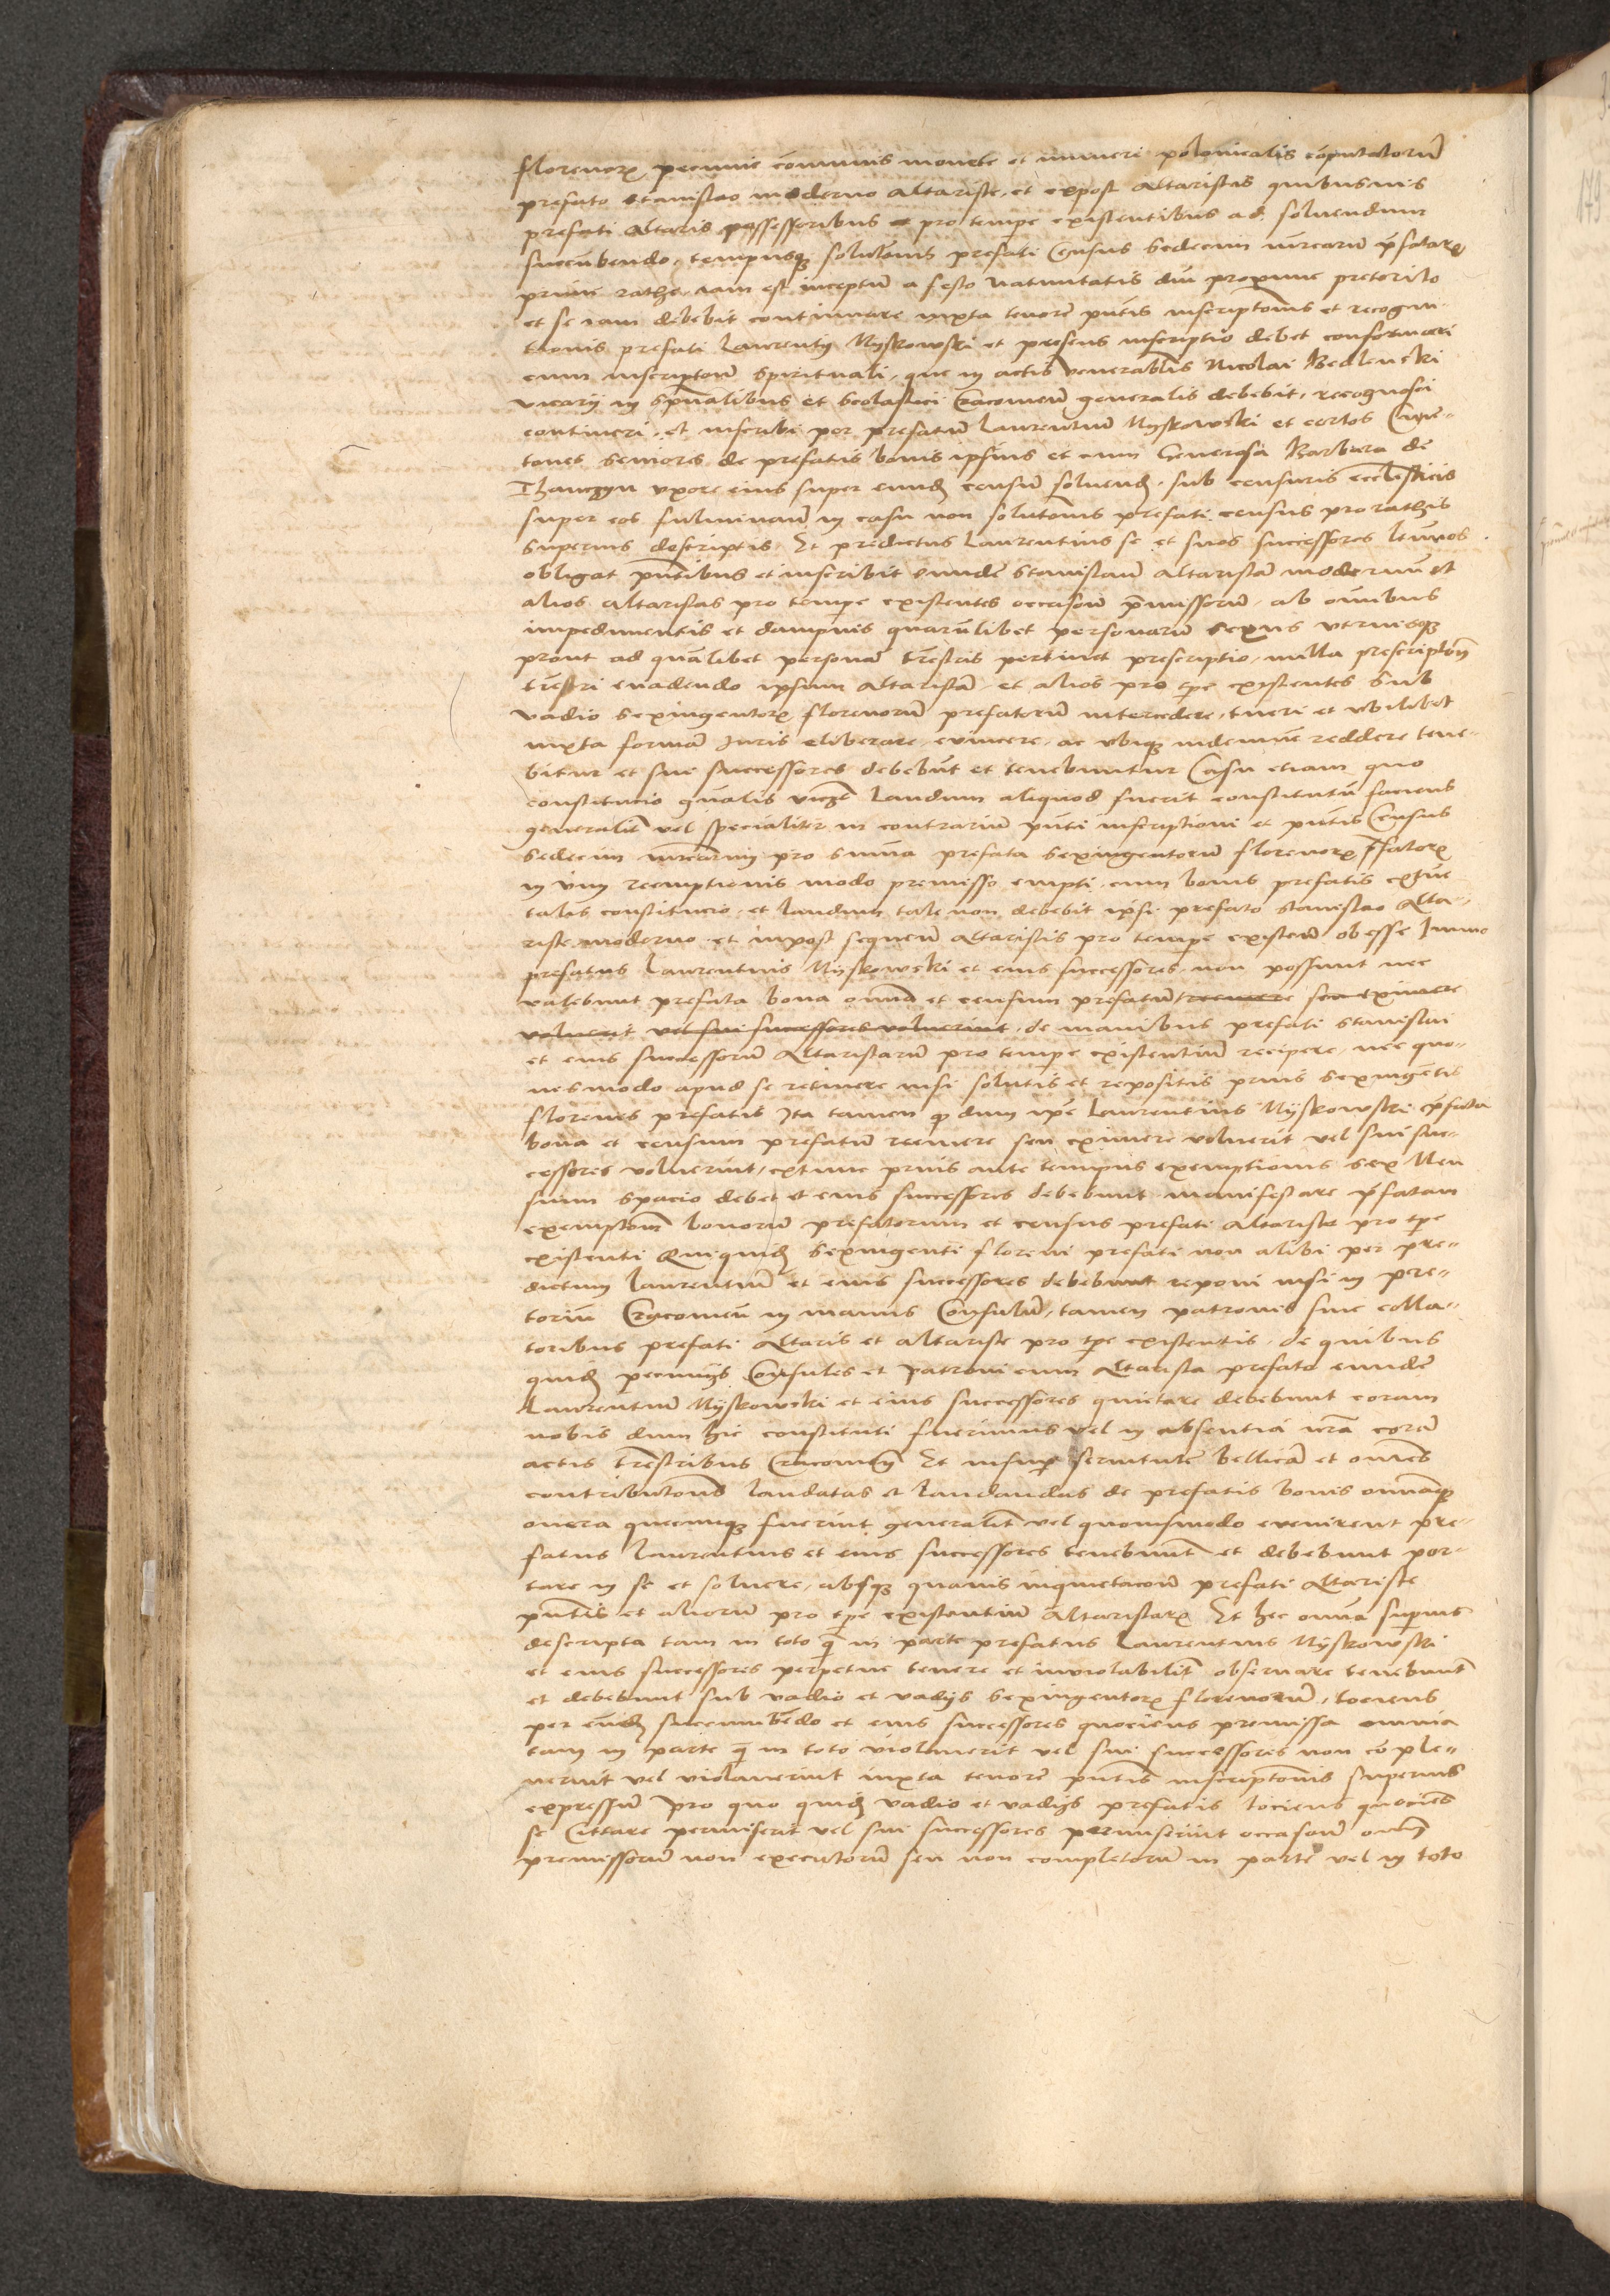 florenorum pecunie communis monete et numeri polonicalis computatorum
prefato Stanislao moderno altariste, et expost altaristis quibusuis
prefati altaris possessoribus pro tempe existentibus ad soluendum
succumbendo, tempusque solutionis prefati Census sedecim mrcarum prefatarum
prime rathe iam est inceptum a festo natiuitatis dni proxime preterito
et se iam debebit continuare iuxta tenorem pntis inscriptionis et recogni-
tionis prefati Laurentij Myskowski et presens inscriptio debet conformari
cum inscriptione spirituali, que in actis venerabilis Nicolai Bedlenski
vicarij in spualibus et scolastici Cracouien generalis debebit, recognosci
contineri, et inscribi per prefatum Laurentium Myskowski et certos Cme-
tones seniores de prefatis bonis ipsius et cum Generosa Barbara de
Thanczyn vxore eius super eundem censum soluendum, sub censuris ecclesiasticis
super eos fulminandum in casu non solutionis prefati census pro rathis
superius descriptis Et predictus Laurentius se et suos successores ltimos
obligat pntibus et inscribit eundem Stanislaum altaristam modernum et
alios altaristas pro tempe existentes occasione premissorum, ab omnibus
impedimentis et dampnis quarumlibet personarum sexus vtriusque
prout ad quamlibet personam trestris pertinet prescriptio, nulla prescriptione
trestri euadendo ipsum altaristam, et alios pro tpe existentes sub
vadio sexingentorum florenorum prefatorum intercedere, tueri et vbilibet
iuxta formam Iuris eliberare, euincere, ac vbique indemne reddere tene-
bitur et sui successores debebunt et tenebuntur Casu etiam quo
constitucio gnalis vicz Laudum aliquod fuerit constitutum faciens
generaliter vel specialiter in contrarium pnti inscriptioni et pntis Census
sedecim mrcarum pro summa prefata sexingentorum florenorum prefatorum
in vim reemptionis modo premisso empti, cum bonis prefatis extunc
talis constitucio, et laudum tale non debebit ipsi prefato Stanislao Alta-
riste moderno et inpost sequen altaristis pro tempe existen obesse Immo
prefatus Laurentius Myskowski et eius successores, non possunt nec
valebunt prefata bona omnia et censum prefatum reemere seu eximere
voluerit vel sui successores voluerint, de manibus prefati Stanislai
et eius successorum Altaristarum pro tempe existentium recipere, nec quo-
uesmodo apud se retinere nisi solutis et repositis prius sexingentis
florenis prefatis Ita tamen quod dum ipse Laurentius Myskowski prefata
bona et censum prefatum reemere seu eximere voluerit vel sui suc-
cessores voluerint, extunc prius ante tempus exemptionis sex Men
sium spacio debet et eius successores debebunt manifestare prefatam
exemptionem bonorum prefatorum et census prefati Altariste pro tpe
existenti Quiquidem sexingenti floreni prefati non alibi per pre-
dictum Laurentium et eius successores debebunt reponi nisi in pre-
torium Cracouien in manus Consulum, tamen patronis siue colla-
toribus prefati Altaris et altariste pro tpe existentis, de quibus
quidem pecunijs Consules et Patroni cum Altarista prefato eundem
Laurentium Myskowski et eius successores quietare debebunt coram
nobis dum hic constituti fuerimus vel in absentia nra coram
actis trestribus Cracouien Et insuper seruitutem bellicam et omnes
contributiones laudatas et laudandas de prefatis bonis omniaque
onera quecunque fuerint generaliter vel quouismodo euenirent pre-
fatus Laurentius et eius successores tenebunt et debebunt por-
tare in se et soluere, absque quauis inquietacione prefati Altariste
pntis et aliorum pro tpe existentium Altaristarum Et hec omnia superius
descripta tam in toto quam in parte prefatus Laurentius Myskowski
et eius successores perpetue tenere et inuiolabiliter obseruare tenebunt
et debebunt sub vadio et vadijs sexingentorum florenorum, tociens
per eundem succumbendo et eius successores quociens premissa omnia
tam in parte quam in toto violauerit vel sui successores non comple-
uerint vel violauerint iuxta tenorem pntis inscriptionis superius
expressum Pro quo quidem vadio et vadijs prefatis tociens quociens
se Cittare permiserit vel sui successores permiserint occasione omnium
premissorum non executorum seu non completorum in parte vel in toto